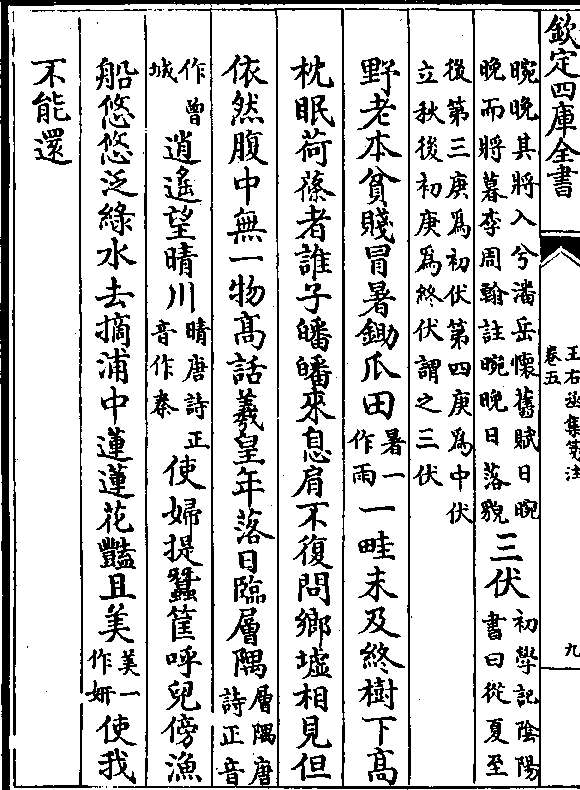 欽定四庫全書
王右丞集箋注
卷五
九
晼晚其將入兮潘岳懷舊賦日晼
晚而將暮李周翰註晼晚日落貌
三伏
初學記陰陽
書曰從夏至
後第三庚為初伏第四庚為中伏
立秋後初庚為終伏謂之三伏
野老本貧賤冒暑鋤瓜田
暑一
作雨
一畦未及終樹下高
枕眠荷蓧者誰子皤皤來息肩不復問鄉墟相見但
依然腹中無一物高話羲皇年落日臨層隅
層隅唐
詩正音
作曽
城
逍遙望晴川
晴唐詩正
音作秦
使婦提蠶筐呼兒傍漁
船悠悠泛綠水去摘浦中蓮蓮花豔且美
美一
作妍
使我
不能還